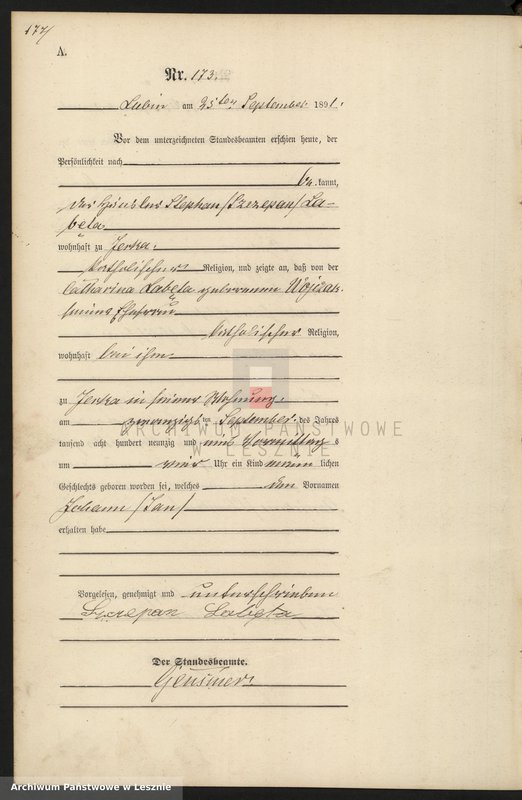 177/
A.
Nr. 173.
Lubin am 23ten September 1891.
Vor dem unterzeichneten Standesbeamten erschien heute, der
Persönlichkeit nach
be kannt,
der Häusler Stephan /Szczepan/ La-
beta
wohnhaft zu Jerka.
katholischer Religion, und zeigte an, daß von der
Catharina Labeta geborenen
seiner Ehefrau
katholischer Religion,
wohnhaft bei ihm
zu Jerka in seiner Wohnung.
am zwanzigsten September des Jahres
tausend acht hundert neunzig und eins Vormittag s
um vier Uhr ein Kind männ lichen
Geschlechts geboren worden sei, welches den Vornamen
Johann /Jan/
erhalten habe
Vorgelesen, genehmigt und unterschrieben
Szczepan Labęta
Der Standesbeamte.
ARCHIWUM PAŃSTWOWE
W LESZNIE
Archiwum Państwowe w Lesznie